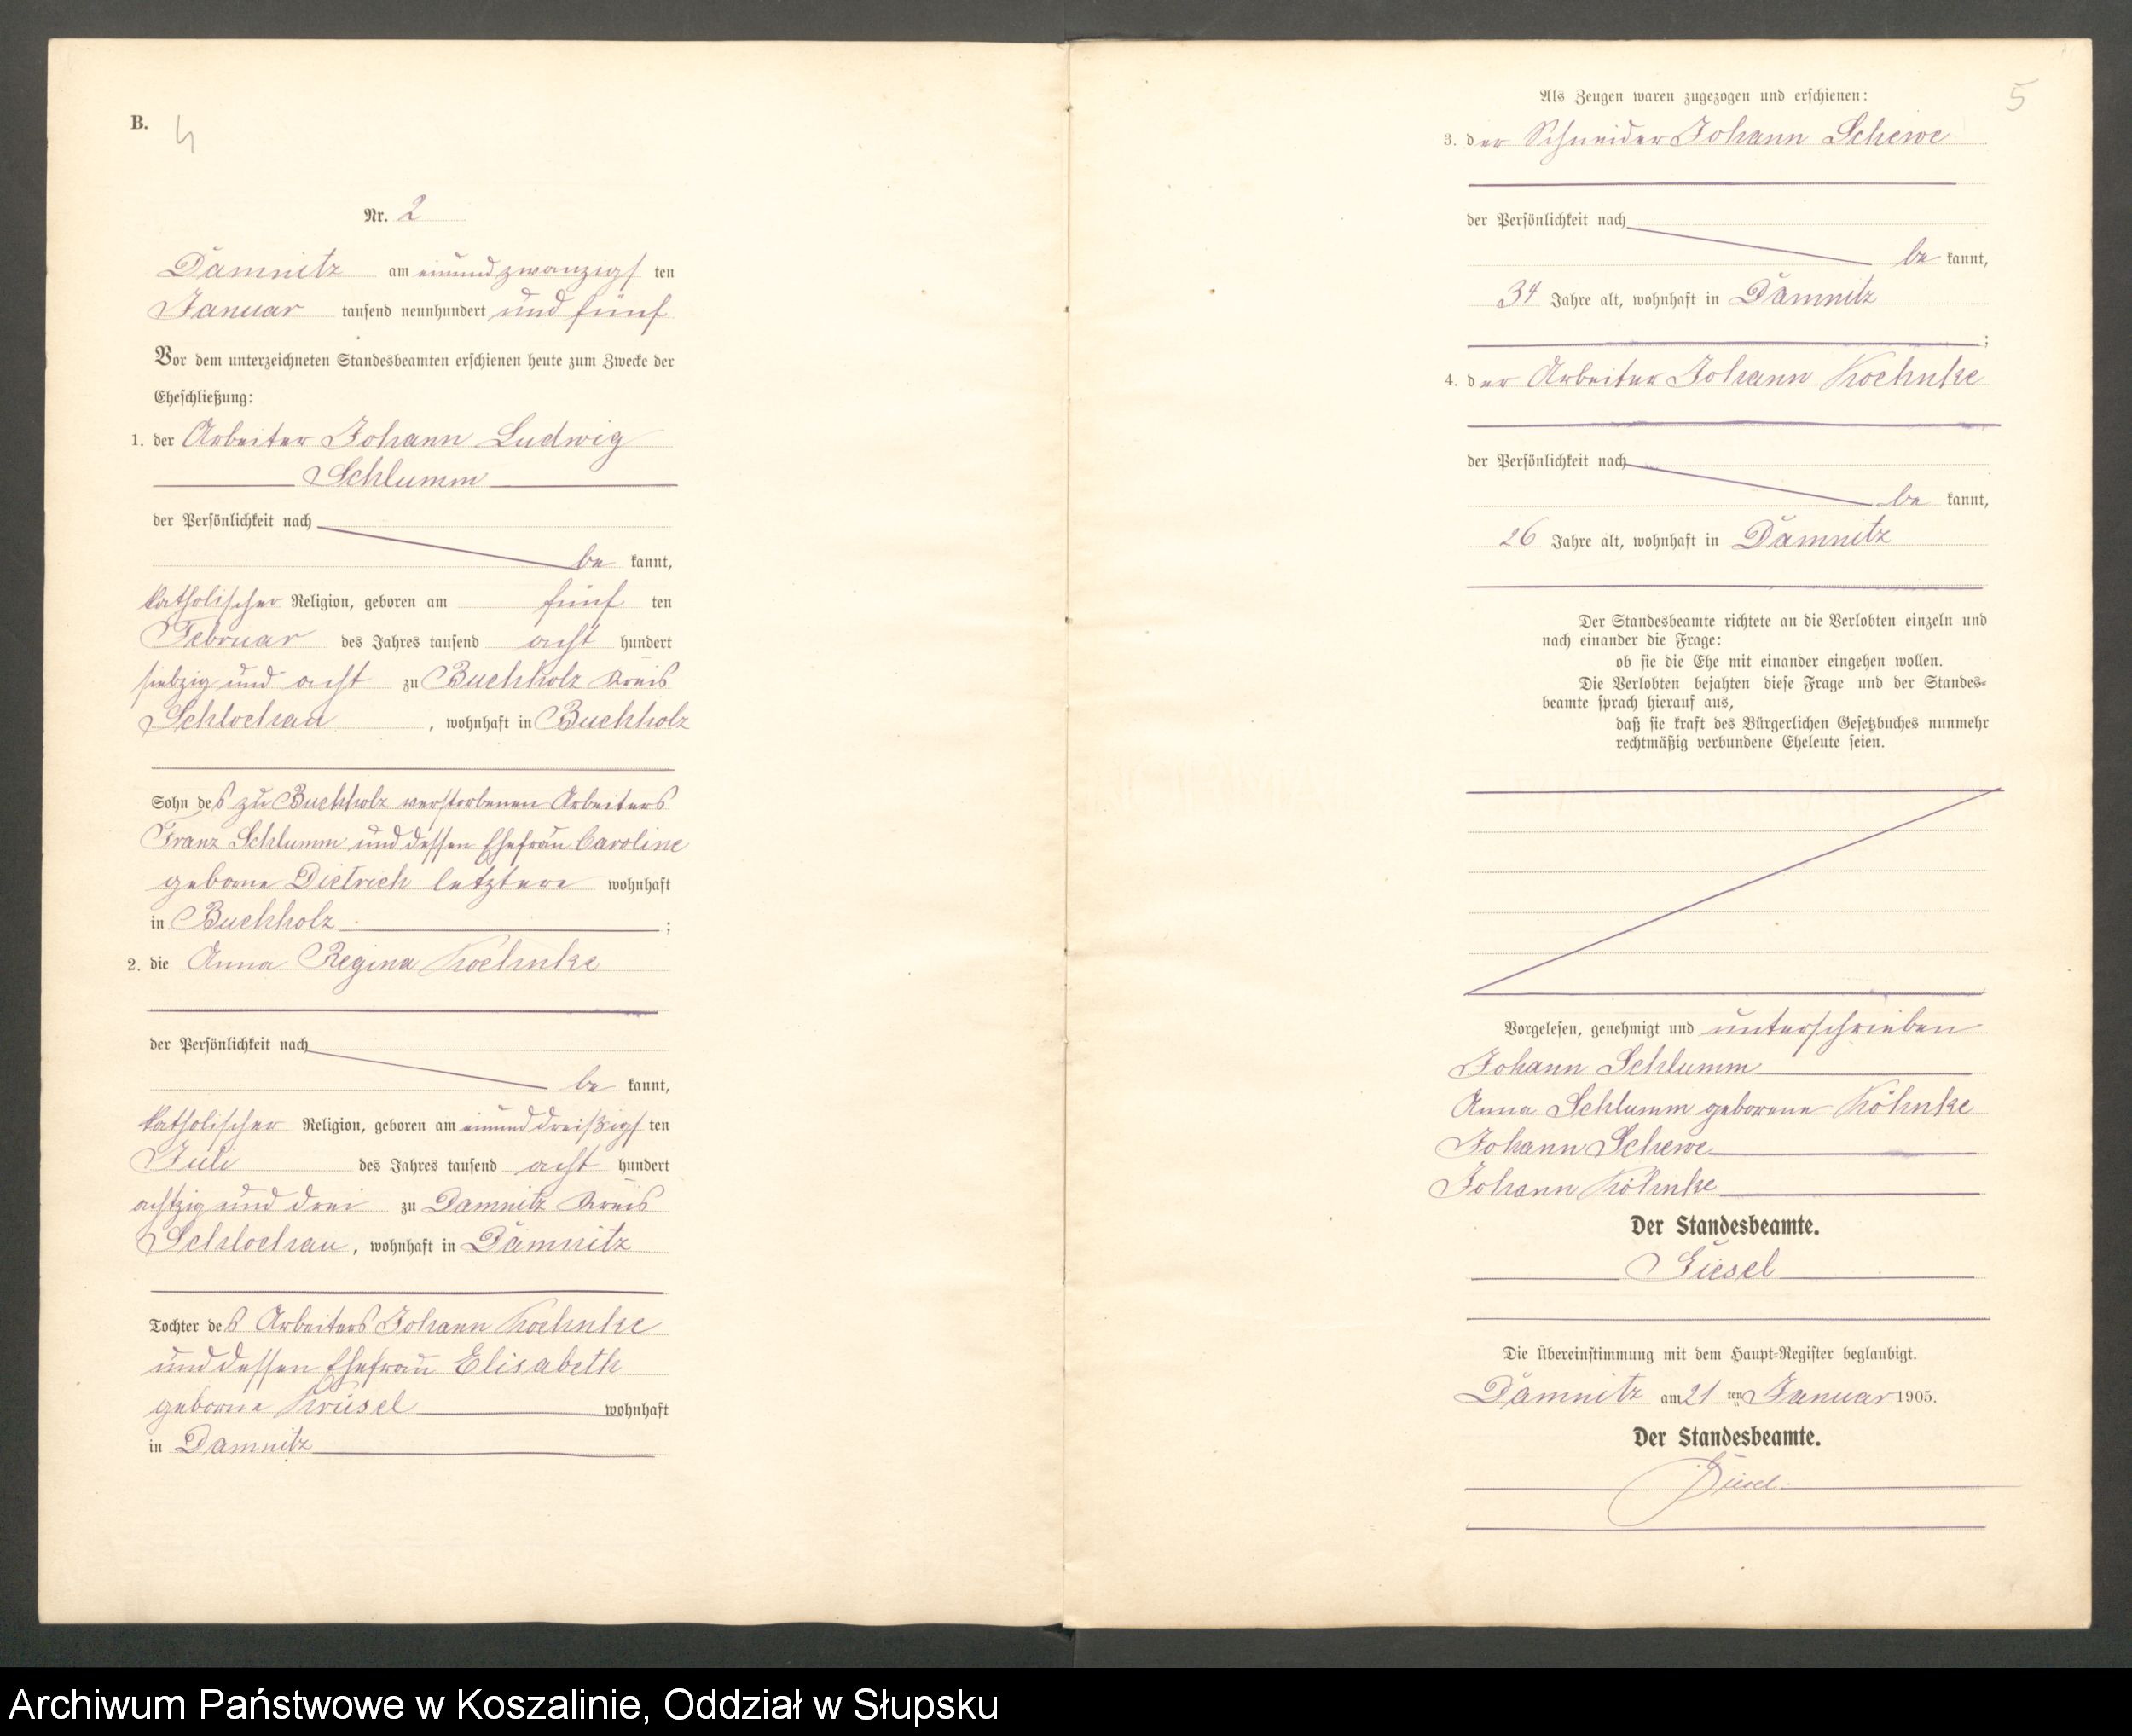 B.
4
Nr. 2
Damnitz am einundzwanzigsten
Januar tausend neunhundert und fünf
Vor dem unterzeichneten Standesbeamten erschienen heute zum Zwecke der
Eheschließung:
1. der Arbeiter Johann Ludwig
Schlumm
der Persönlichkeit nach
bekannt,
katholischer Religion, geboren am fünften
Februar des Jahres tausend achthundert
siebzig und acht zu Buchholz Kreis
Schlochau, wohnhaft in Buchholz
Sohn des zu Buchholz verstorbenen Arbeiters
Franz Schlumm und dessen Ehefrau Caroline
geborne Dietrich letztere wohnhaft
in Buchholz;
2. die Anna Regina Koehnke
der Persönlichkeit nach
bekannt,
katholischer Religion, geboren am einunddreißigsten
Juli des Jahres tausend achthundert
achtzig und drei zu Damnitz Kreis
Schlochau, wohnhaft in Damnitz
Tochter des Arbeiters Johann Koehnke
und dessen Ehefrau Elisabeth
geborne Krüsel wohnhaft
in Damnitz
5
Als Zeugen waren zugezogen und erschienen:
3. der Schneider Johann Schewe
der Persönlichkeit nach
bekannt,
34 Jahre alt, wohnhaft in Damnitz
;
4. der Arbeiter Johann Koehnke
der Persönlichkeit nach
bekannt,
26 Jahre alt, wohnhaft in Damnitz
Der Standesbeamte richtete an die Verlobten einzeln und
nach einander die Frage:
ob sie die Ehe mit einander eingehen wollen.
Die Verlobten bejahten diese Frage und der Standes-
beamte sprach hierauf aus,
daß sie kraft des Bürgerlichen Gesetzbuches nunmehr
rechtmäßig verbundene Eheleute seien.
Vorgelesen, genehmigt und unterschrieben
Johann Schlumm
Anna Schlumm geborene Köhnke
Johann Schewe
Johann Köhnke
Der Standesbeamte.
Giesel
Die Übereinstimmung mit dem Haupt-Register beglaubigt.
Damnitz am 21ten Januar 1905.
Der Standesbeamte.
Giesel
Archiwum Państwowe w Koszalinie, Oddział w Słupsku